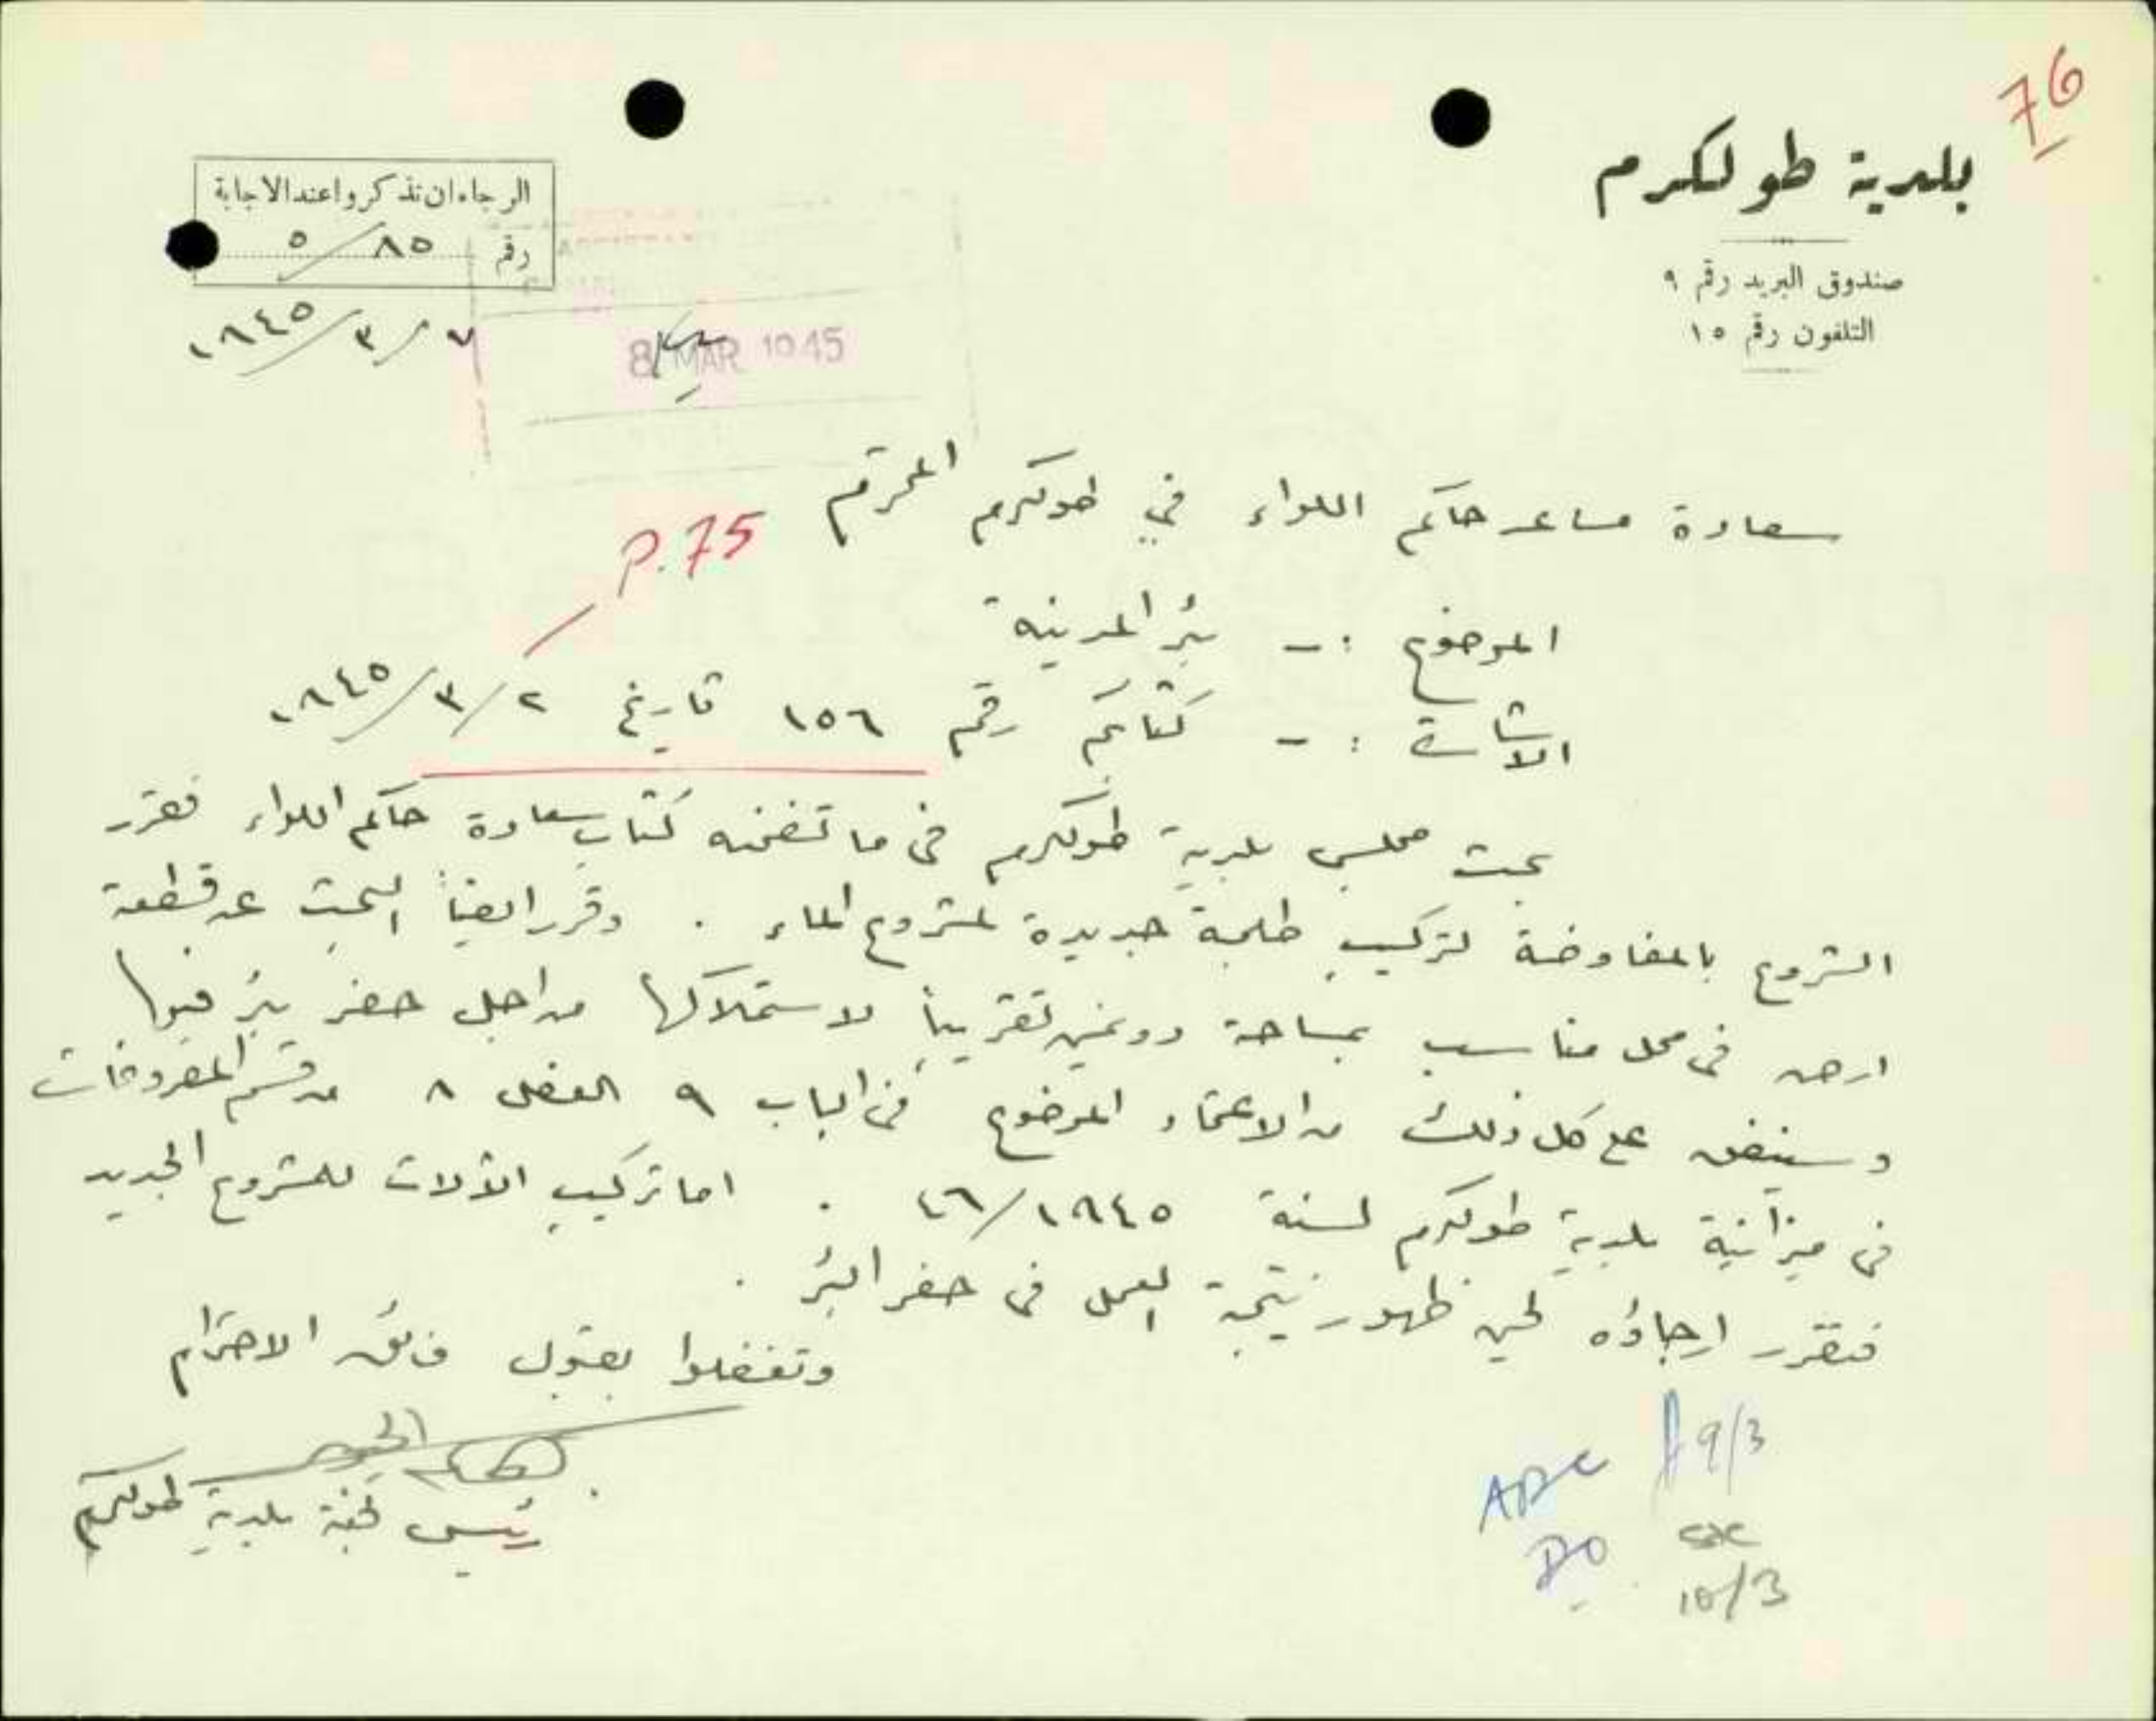 76
بلدية طولكرم
صندوق البريد رقم ٩
التلفون رقم ١٥
الرجاء ان تذكروا عند الاجابة
رقم ٥/٨٥
٧/٣/١٩٤٥
8 MAR 1945
سعادة مساعد حاكم اللواء في طولكرم المحترم
P.75
الموضوع :- بئر المدينة
الاشارة :- كتابكم رقم ١٥٦ تاريخ ٢/٣/١٩٤٥
بحث مجلس بلدية طولكرم في ما تضمنه كتاب سعادة حاكم اللواء فقرر
الشروع بالمفاوضة لتركيب طلمبة جديدة لمشروع الماء . وقرر ايضاً البحث عن قطعة
ارض في محل مناسب بمساحة دونمين تقريباً لاستملاكها من اجل حفر بئر فيها
وسينفق على كل ذلك من الاعتماد الموضوع في الباب ٩ الفصل ٨ من قسم المصروفات
في ميزانية بلدية طولكرم لسنة ٤٦/١٩٤٥ . اما تركيب الآلات للمشروع الجديد
فتقرر ارجاؤه لحين ظهور نتيجة العمل في حفر البئر .
وتفضلوا بقبول فائق الاحترام
رئيس لجنة بلدية طولكرم
ADC 9/3
DO
10/3